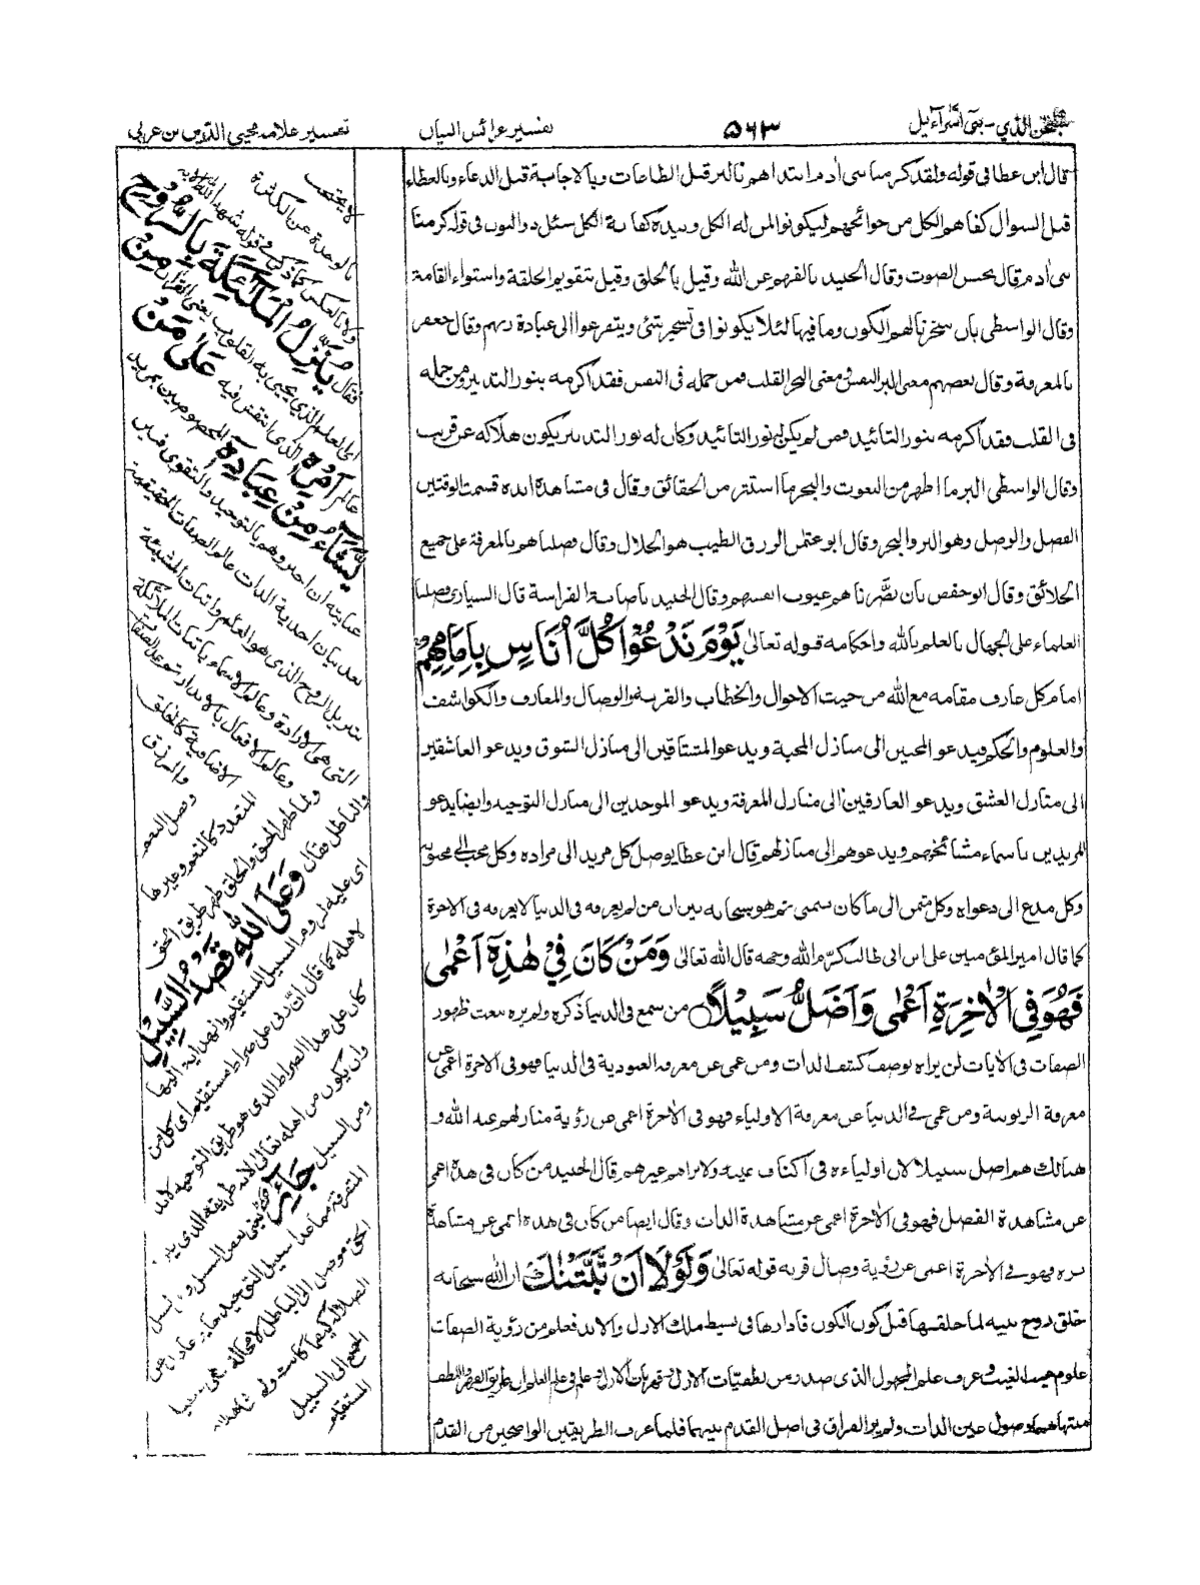 سبحن الذي - بنی اسرآءیل ٥٦٣ تفسیر عرائس البیان تفسیر علامه محیی الدین بن عربی
قال ابن عطا فی قوله ولقد كرمنا بنی اٰدم ابتداهم بالبر قبل الطاعات وبالاجابة قبل الدعاء وبالعطاء
قبل السوال كفاهم الكل من حوائجهم لیكونوا لمن له الكل وبیده كفایة الكل سئل ذو النون فی قوله كرمنا
بنی اٰدم قال بحسن الصوت وقال الجنید بالفهم عن الله وقیل بالخلق وقیل بتقویم الخلقة واستواء القامة
وقال الواسطی بان سخرنا لهم الكون وما فیها لئلا یكونوا فی تسخیر شئ ویتفرعوا الی عبادة ربهم وقال جعفر
بالمعرفة وقال بعضهم معنی البر النفس ومعنی البحر القلب فمن حمله فی النفس فقد اكرمه بنور التدبیر ومن حمله
فی القلب فقد اكرمه بنور التائید فمن لم یكن له نور التائید وكان له نور التدبیر یكون هلاكه عن قریب
وقال الواسطی البر ما اظهر من النعوت والبحر ما استتر من الحقائق وقال فی مشاهدة ابده قسمت الوقتین
الفصل والوصل وهو البر والبحر وقال ابو عثمٰن الرزق الطیب هو الحلال وقال فضلناهم بالمعرفة علی جمیع
الخلائق وقال ابو حفص بان بصّرناهم عیوب انفسهم وقال الجنید باصابة الفراسة قال السیاری فضلنا
العلماء علی الجهال بالعلم بالله واحكامه قوله تعالیٰ یَوْمَ نَدْعُوْا كُلَّ اُنَاسٍ بِاِمَامِهِمْ
امام كل عارف مقامه مع الله من حیث الاحوال والخطاب والقربة والوصال والمعارف والكواشف
والعلوم والحكم فیدعو المحبین الی منازل المحبة ویدعو المشتاقین الی منازل الشوق ویدعو العاشقین
الی منازل العشق ویدعو العارفین الی منازل المعرفة ویدعو الموحدین الی منازل التوحید وایضا یدعو
المریدین باسماء مشائخهم ویدعوهم الی منازلهم قال ابن عطا یوصل كل مرید الی مراده وكل محب الی محبوبه
وكل مدع الی دعواه وكل منتم الی ما كان ینتمی ثم هو سبحانه بین ان من لم یعرفه فی الدنیا لا یعرفه فی الاخرة
كما قال امیر المؤمنین علی ابن ابی طالب كرّم الله وجهه قال الله تعالیٰ وَمَنْ كَانَ فِیْ هٰذِهٖٓ اَعْمٰی
فَهُوَ فِی الْاٰخِرَةِ اَعْمٰی وَاَضَلُّ سَبِیْلًا من سمع فی الدنیا ذكره ولم یره بنعت ظهور
الصفات فی الاٰیات لن یراه بوصف كشف الذات ومن عمی عن معرفة العبودیة فی الدنیا فهو فی الاخرة اعمی عن
معرفة الربوبیة ومن عمی فی الدنیا عن معرفة الاولیاء فهو فی الاٰخرة اعمی عن رؤیة منازلهم عند الله و
هنالك هم اضل سبیلا لان اولیاءه فی اكناف غیبه ولا یراهم غیرهم قال الجنید من كان فی هذه اعمی
عن مشاهدة الفضل فهو فی الاٰخرة اعمی عن مشاهدة الذات وقال ایضا من كان فی هذه اعمی عن مشاهدة
بره فهو فی الاٰخرة اعمی عن رؤیة وصال قربه قوله تعالیٰ وَلَوْلَا اَنْ ثَبَّتْنٰكَ ان الله سبحانه
خلق روح نبیه لما خلقها قبل كون الكون فادارها فی بسیط ملك الازل والابد فعلم من رؤیة الصفات
علوم غیب الغیب وعرف علم المجهول الذی صدر من لطفیات الازل وقهریات الازل فعلم فی علم العلم ان طریق القهر واللطف
منتهاهما وصول عین الذات ولم یر الفراق فی اصل القدم بینهما فلما عرف الطریقین الواضحین من القدم
لا یحتجب
بالوحدة عن الكثرة
ولا بالعكس كما ذكر فی قوله شهد الله
فقال یُنَزِّلُ الْمَلٰٓئِكَةَ بِالرُّوْحِ
ای العلم الذی یحیی به القلوب یعنی القراٰن مِنْ
عالم اَمْرِهٖ الذی انتقش فیه عَلٰی مَنْ
یَّشَآءُ مِنْ عِبَادِهٖٓ المخصوصین بمزید
عنایته ان اخبروهم بالتوحید والتقوی فبین
بعد بیان احدیة الذات عالم الصفات الحقیقیة
بتنزیل الروح الذی هو العلم واثبات المشیئة
التی هی الارادة وعالم الاسماء باثبات الملائكة
وعالم الافعال بالانذار ثم عد الصفات
الاضافیة كالخلق
والرزق
وفصل النعم
المتعددة كالنعم وغیرها
ولما ظهر الحق والخلق ظهر طریق الحق
والباطل فقال وَعَلَی اللّٰهِ قَصْدُ السَّبِیْلِ
ای علیه لزوم السبیل المستقیم والهدایة الیها
لاهله كما قال ان ربی علی صراط مستقیم ای كل من
كان علی هذا الصراط الذی هو طریق التوحید لابد
وان یكون من اهله تعالی لانه طریقه الذی
ومن السبیل جَآئِرٌ یعنی بعض السبیل وهی السبل
المتفرقة مما عدا سبیل التوحید جائر عادل عن
الحق موصل الی الباطل لا محالة فهی سبیل
الضلالة كیفما كانت ولو شاء لهدٰكم
اجمع الی السبیل
المستقیم